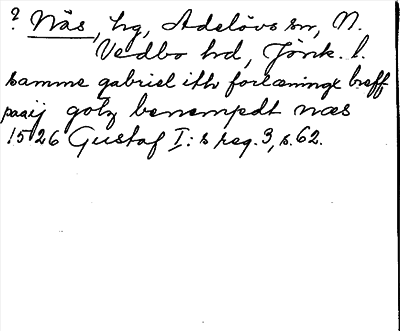 ? Näs, hg, Adelövs sn, N.
Vedbo hd, Jönk. l.
samme gabriel ith forlæninge breff
paaij gotz benempdt næs
1526 Gustaf I:s reg. 3, s. 62.